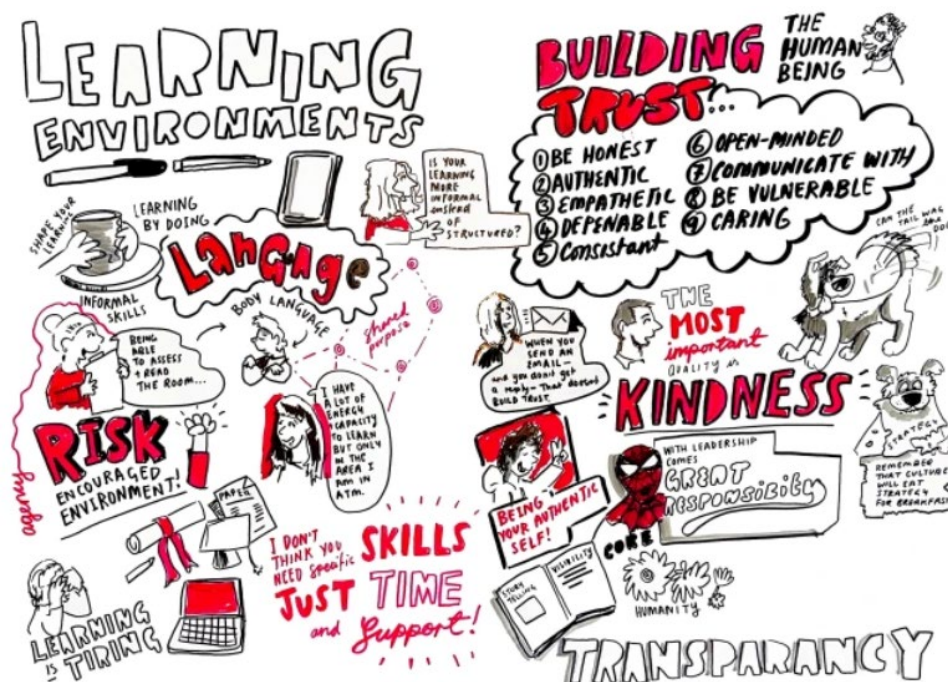 LEARNING
ENVIRONMENTS
SHAPE YOUR
LEARNING
LEARNING
BY DOING
INFORMAL
SKILLS
Language
IS YOUR
LEARNING
MORE
INFORMAL
instead
OF
STRUCTURED?
BODY LANGUAGE
shared
purpose
BEING
ABLE
TO ASSESS
+ READ
THE ROOM...
I HAVE
A LOT OF
ENERGY
+ CAPACITY
TO LEARN
BUT ONLY
IN THE
AREA I
AM IN
ATM.
RISK
ENCOURAGED
ENVIRONMENT!
PAPER
LEARNING
IS
TIRING
I DON'T
THINK YOU
NEED specific
SKILLS
JUST TIME
and Support!
BUILDING
TRUST...
THE
HUMAN
BEING
① BE HONEST
② AUTHENTIC
③ EMPATHETIC
④ DEPENABLE
⑤ Consistant
⑥ OPEN-MINDED
⑦ COMMUNICATE WITH
⑧ BE VULNERABLE
⑨ CARING
CAN THE
TAIL WAG
THE
DOG
WHEN YOU
SEND AN
EMAIL—
and you don't get
a reply— That doesn't
BUILD TRUST
THE
MOST
important
QUALITY is
KINDNESS
STRATEGY
REMEMBER
THAT CULTURE
WILL EAT
STRATEGY
FOR BREAKFAST
BEING
YOUR AUTHENTIC
SELF!
WITH LEADERSHIP
COMES
GREAT
RESPONSIBILITY
CORE
STORY
TELLING
VISIBILITY
HUMANITY
TRANSPARANCY